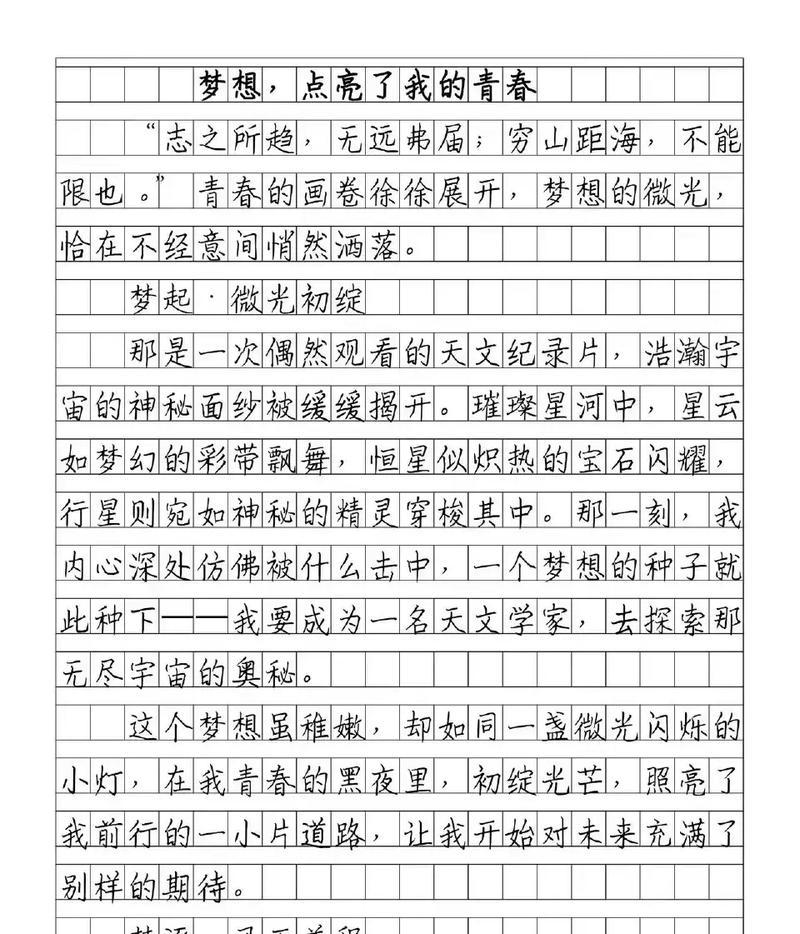 梦想，点亮了我的青春
“志之所趋，无远弗届；穷山距海，不能
限也。”青春的画卷徐徐展开，梦想的微光，
恰在不经意间悄然洒落。
梦起·微光初绽
那是一次偶然观看的天文纪录片，浩瀚宇
宙的神秘面纱被缓缓揭开。璀璨星河中，星云
如梦幻的彩带飘舞，恒星似炽热的宝石闪耀，
行星则宛如神秘的精灵穿梭其中。那一刻，我
内心深处仿佛被什么击中，一个梦想的种子就
此种下——我要成为一名天文学家，去探索那
无尽宇宙的奥秘。
这个梦想虽稚嫩，却如同一盏微光闪烁的
小灯，在我青春的黑夜里，初绽光芒，照亮了
我前行的一小片道路，让我开始对未来充满了
别样的期待。